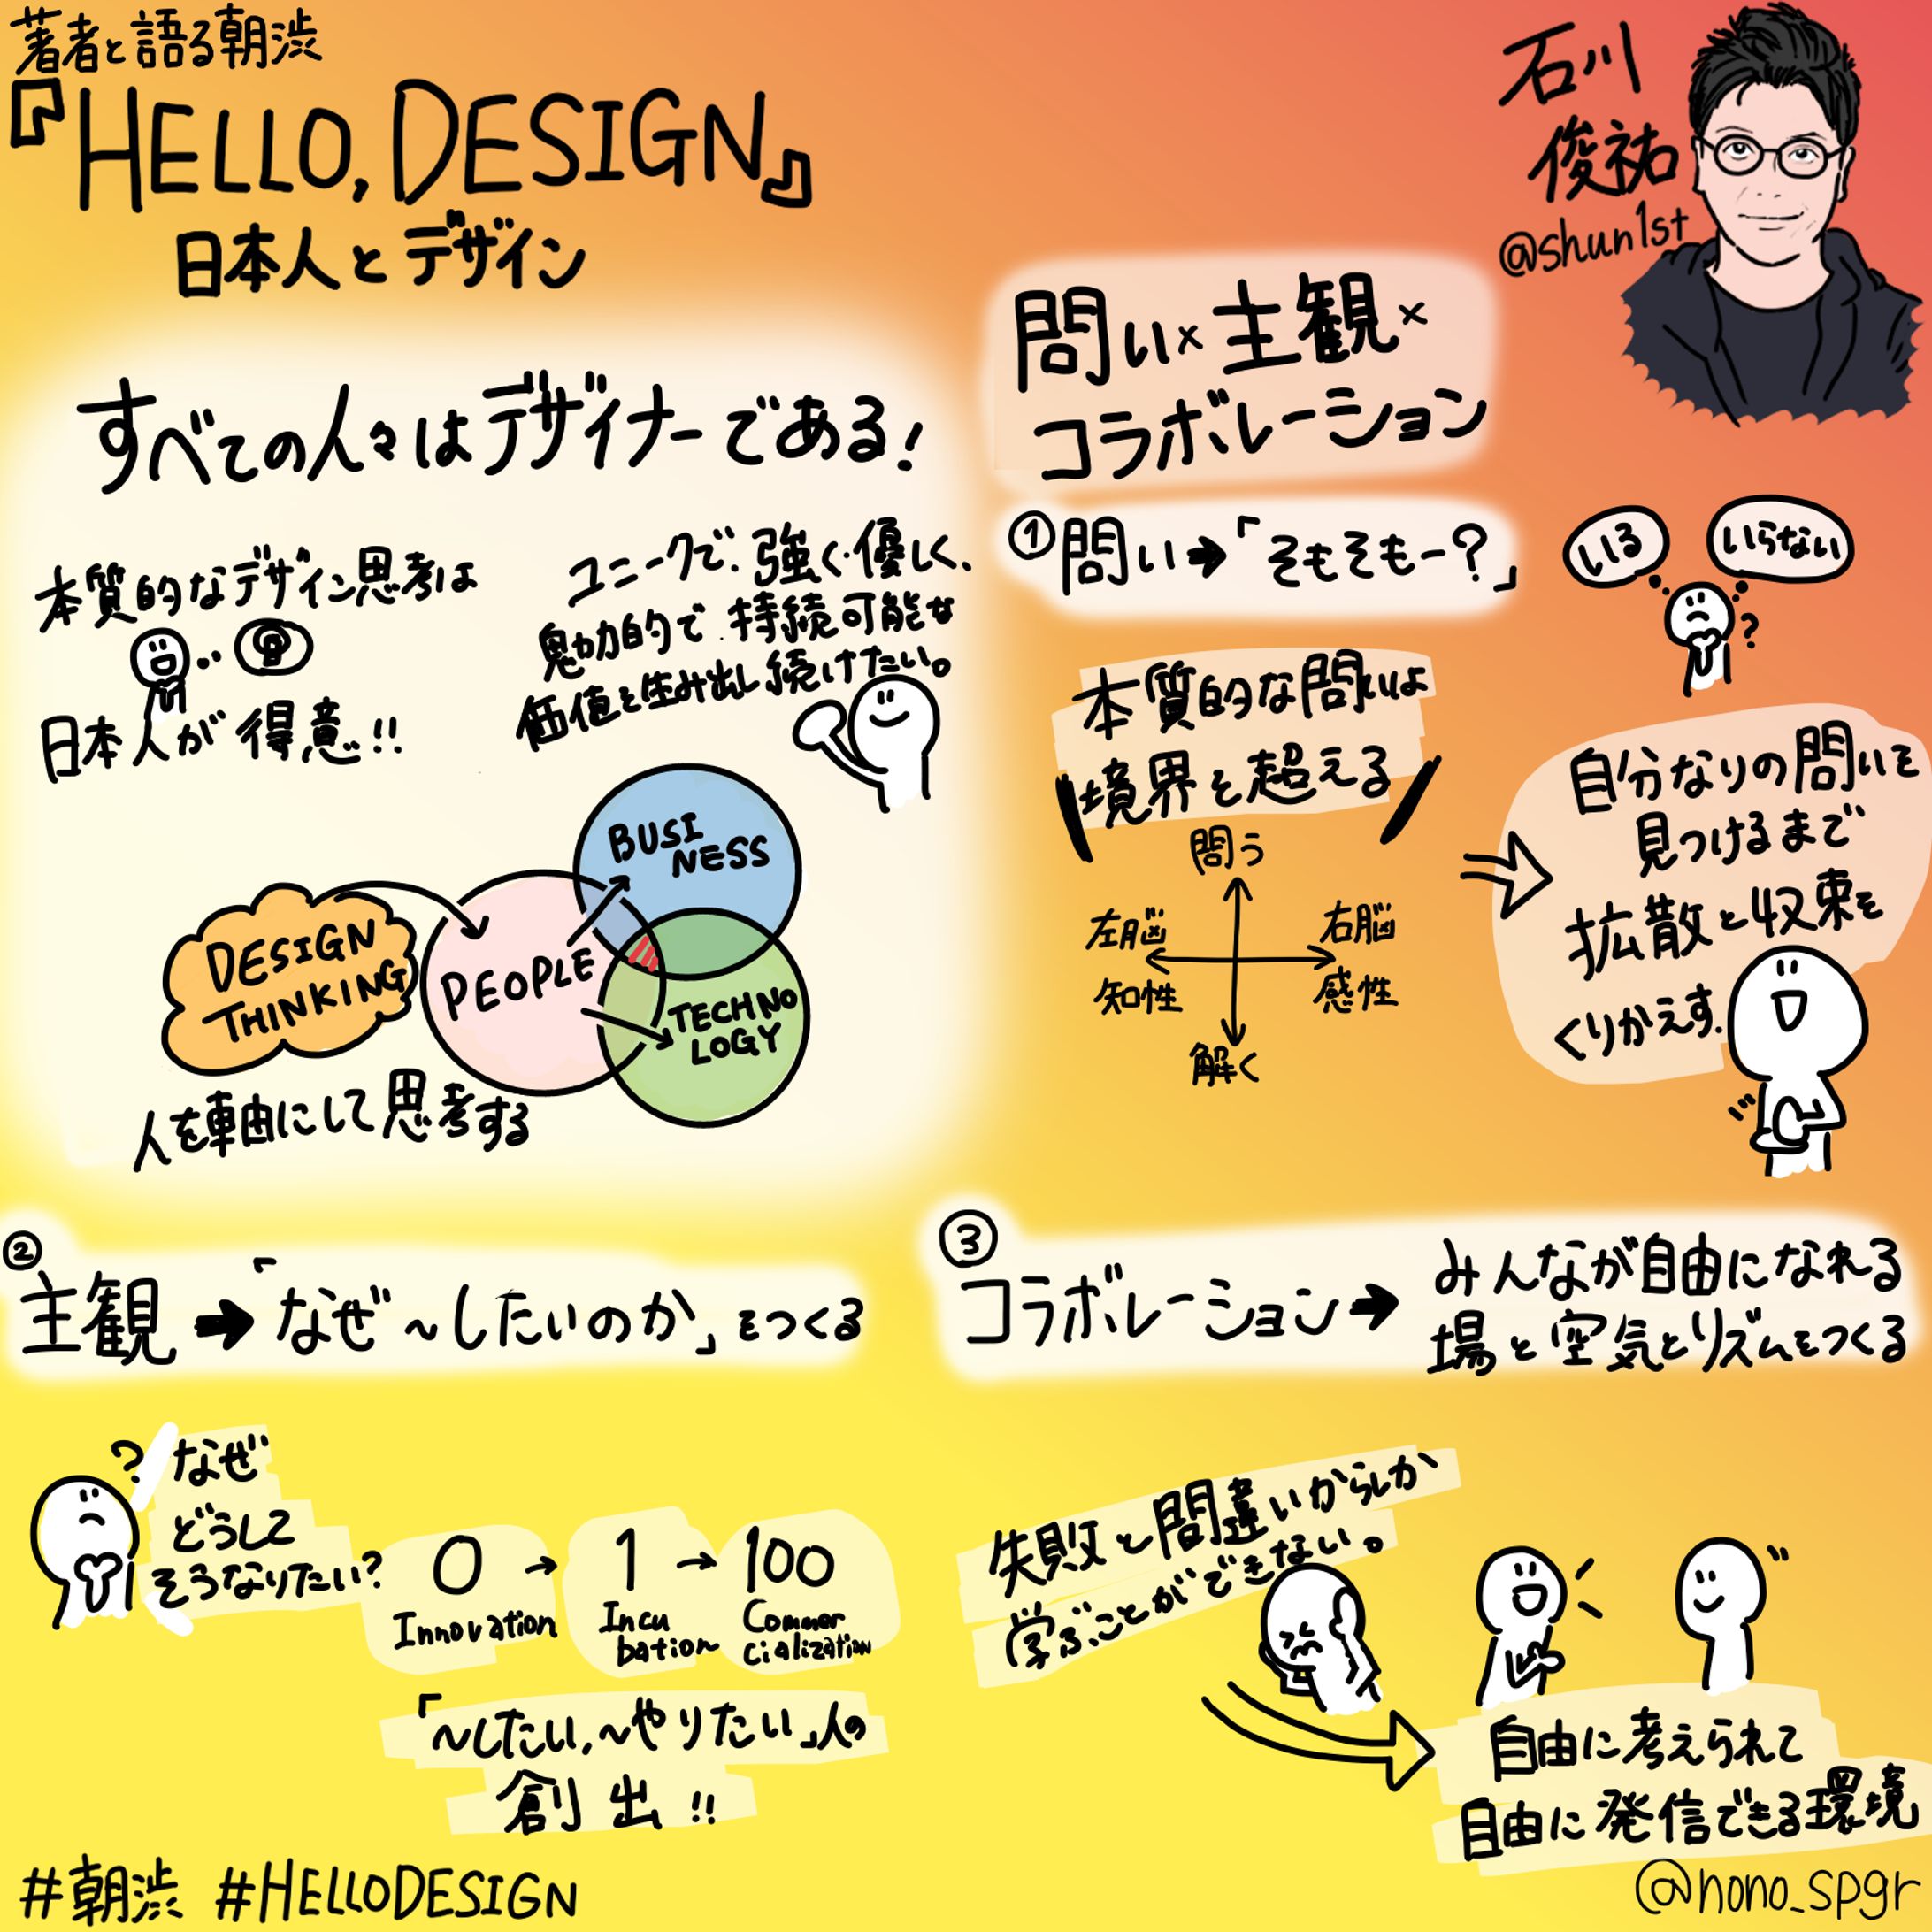 著者と語る朝渋
『HELLO, DESIGN』
日本人とデザイン
石川
俊祐
@shun1st
すべての人々はデザイナーである!
本質的なデザイン思考は
日本人が得意!!
ユニークで、強く、優しく、
魅力的で、持続可能な
価値を生み出し続けたい。
BUSI
NESS
DESIGN
THINKING
PEOPLE
TECHNO
LOGY
人を軸にして思考する
問い×主観×
コラボレーション
①問い➔「そもそもー?」
いる
いらない
?
本質的な問いは
境界を超える
問う
左脳
右脳
知性
感性
解く
自分なりの問いを
見つけるまで
拡散と収束を
くりかえす.
②
主観➔「なぜ~したいのか」をつくる
?
なぜ
どうして
そうなりたい?
0→1→100
Innovation
Incu
bation
Commer
cialization
「~したい,~やりたい」人の
創出!!
③
コラボレーション➔
みんなが自由になれる
場と空気とリズムをつくる
失敗と間違いからしか
学ぶことができない。
自由に考えられて
自由に発信できる環境
#朝渋 #HELLODESIGN
@nono_spgr